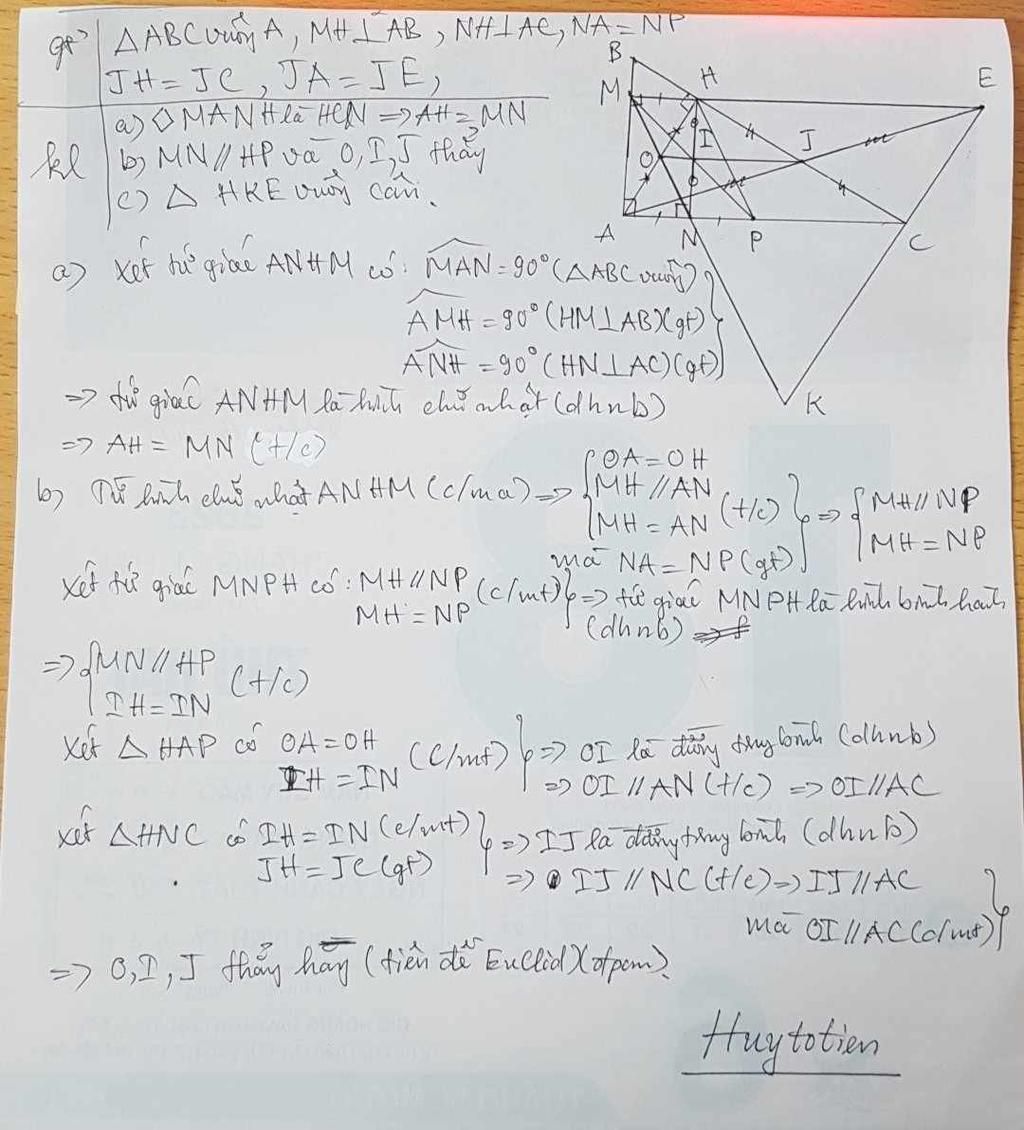 gt | △ABC vuông A, MH⊥AB, NH⊥AC, NA=NP
JH=JC, JA=JE,
kl | a) ◇MANH là HCN => AH=MN
b) MN // HP và O,I,J thẳng
c) △ HKE vuông cân.
B
M
H
E
I
J
O
A
N
P
C
K
a) Xét tứ giác ANHM có: MAN = 90° (△ABC vuông)
AMH = 90° (HM⊥AB)(gt)
ANH = 90° (HN⊥AC)(gt)
=> tứ giác ANHM là hình chữ nhật (dhnb)
=> AH = MN (t/c)
b) Từ hình chữ nhật ANHM (c/ma) => { OA=OH
MH // AN
MH = AN (t/c) } => { MH // NP
mà NA = NP (gt) MH = NP
Xét tứ giác MNPH có: MH // NP (c/mt) } => tứ giác MNPH là hình bình hành
MH = NP (dhnb)
=> { MN // HP
IH = IN (t/c)
Xét △ HAP có OA=OH (c/mt) } => OI là đường trung bình (dhnb)
IH = IN => OI // AN (t/c) => OI // AC
Xét △HNC có IH = IN (c/mt) } => IJ là đường trung bình (dhnb)
JH = JC (gt) => IJ // NC (t/c) => IJ // AC
mà OI // AC (c/mt) }
=> O, I, J thẳng hàng (tiên đề Euclid)(đfpcm).
Huytotien